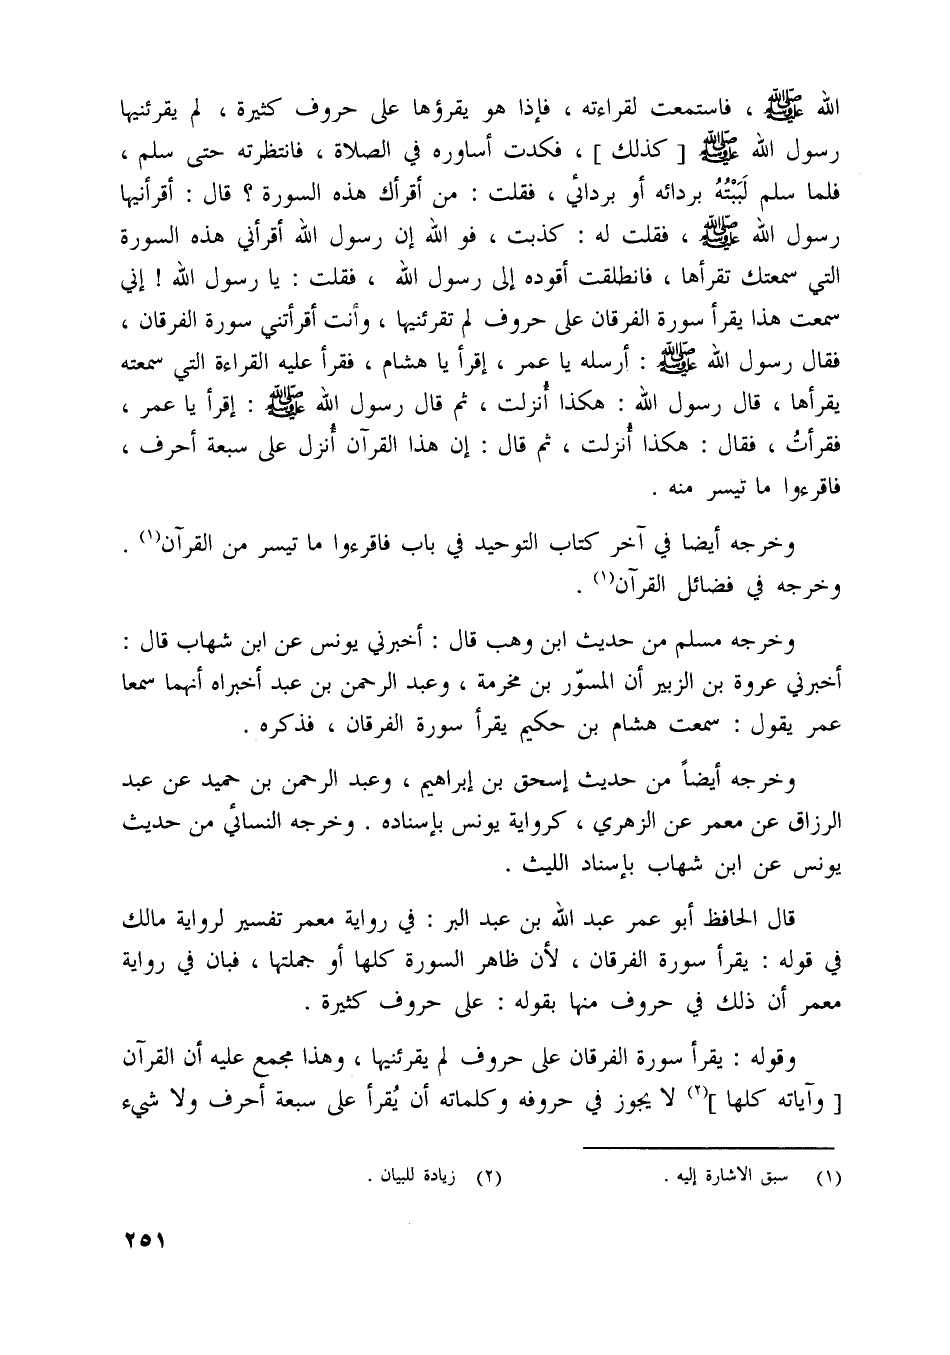 الله ﷺ ، فاستمعت لقراءته ، فإذا هو يقرؤها على حروف كثيرة ، لم يقرئنيها
رسول الله ﷺ [ كذلك ] ، فكدت أساوره في الصلاة ، فانتظرته حتى سلم ،
فلما سلم لَبَبْتُهُ بردائه أو بردائي ، فقلت : من أقرأك هذه السورة ؟ قال : أقرأنيها
رسول الله ﷺ ، فقلت له : كذبت ، فو الله إن رسول الله أقرأني هذه السورة
التي سمعتك تقرأها ، فانطلقت أقوده إلى رسول الله ، فقلت : يا رسول الله ! إني
سمعت هذا يقرأ سورة الفرقان على حروف لم تقرئنيها ، وأنت أقرأتني سورة الفرقان ،
فقال رسول الله ﷺ : أرسله يا عمر ، إقرأ يا هشام ، فقرأ عليه القراءة التي سمعته
يقرأها ، قال رسول الله : هكذا أُنزلت ، ثم قال رسول الله ﷺ : إقرأ يا عمر ،
فقرأتُ ، فقال : هكذا أُنزلت ، ثم قال : إن هذا القرآن أُنزل على سبعة أحرف ،
فاقرءوا ما تيسر منه .
وخرجه أيضا في آخر كتاب التوحيد في باب فاقرءوا ما تيسر من القرآن(١) .
وخرجه في فضائل القرآن(١) .
وخرجه مسلم من حديث ابن وهب قال : أخبرني يونس عن ابن شهاب قال :
أخبرني عروة بن الزبير أن المسوّر بن مخرمة ، وعبد الرحمن بن عبد أخبراه أنهما سمعا
عمر يقول : سمعت هشام بن حكيم يقرأ سورة الفرقان ، فذكره .
وخرجه أيضاً من حديث إسحق بن إبراهيم ، وعبد الرحمن بن حميد عن عبد
الرزاق عن معمر عن الزهري ، كرواية يونس بإسناده . وخرجه النسائي من حديث
يونس عن ابن شهاب بإسناد الليث .
قال الحافظ أبو عمر عبد الله بن عبد البر : في رواية معمر تفسير لرواية مالك
في قوله : يقرأ سورة الفرقان ، لأن ظاهر السورة كلها أو جملتها ، فبان في رواية
معمر أن ذلك في حروف منها بقوله : على حروف كثيرة .
وقوله : يقرأ سورة الفرقان على حروف لم يقرئنيها ، وهذا مجمع عليه أن القرآن
[ وآياته كلها ](٢) لا يجوز في حروفه وكلماته أن يُقرأ على سبعة أحرف ولا شيء
(١) سبق الاشارة إليه . (٢) زيادة للبيان .
٢٥١